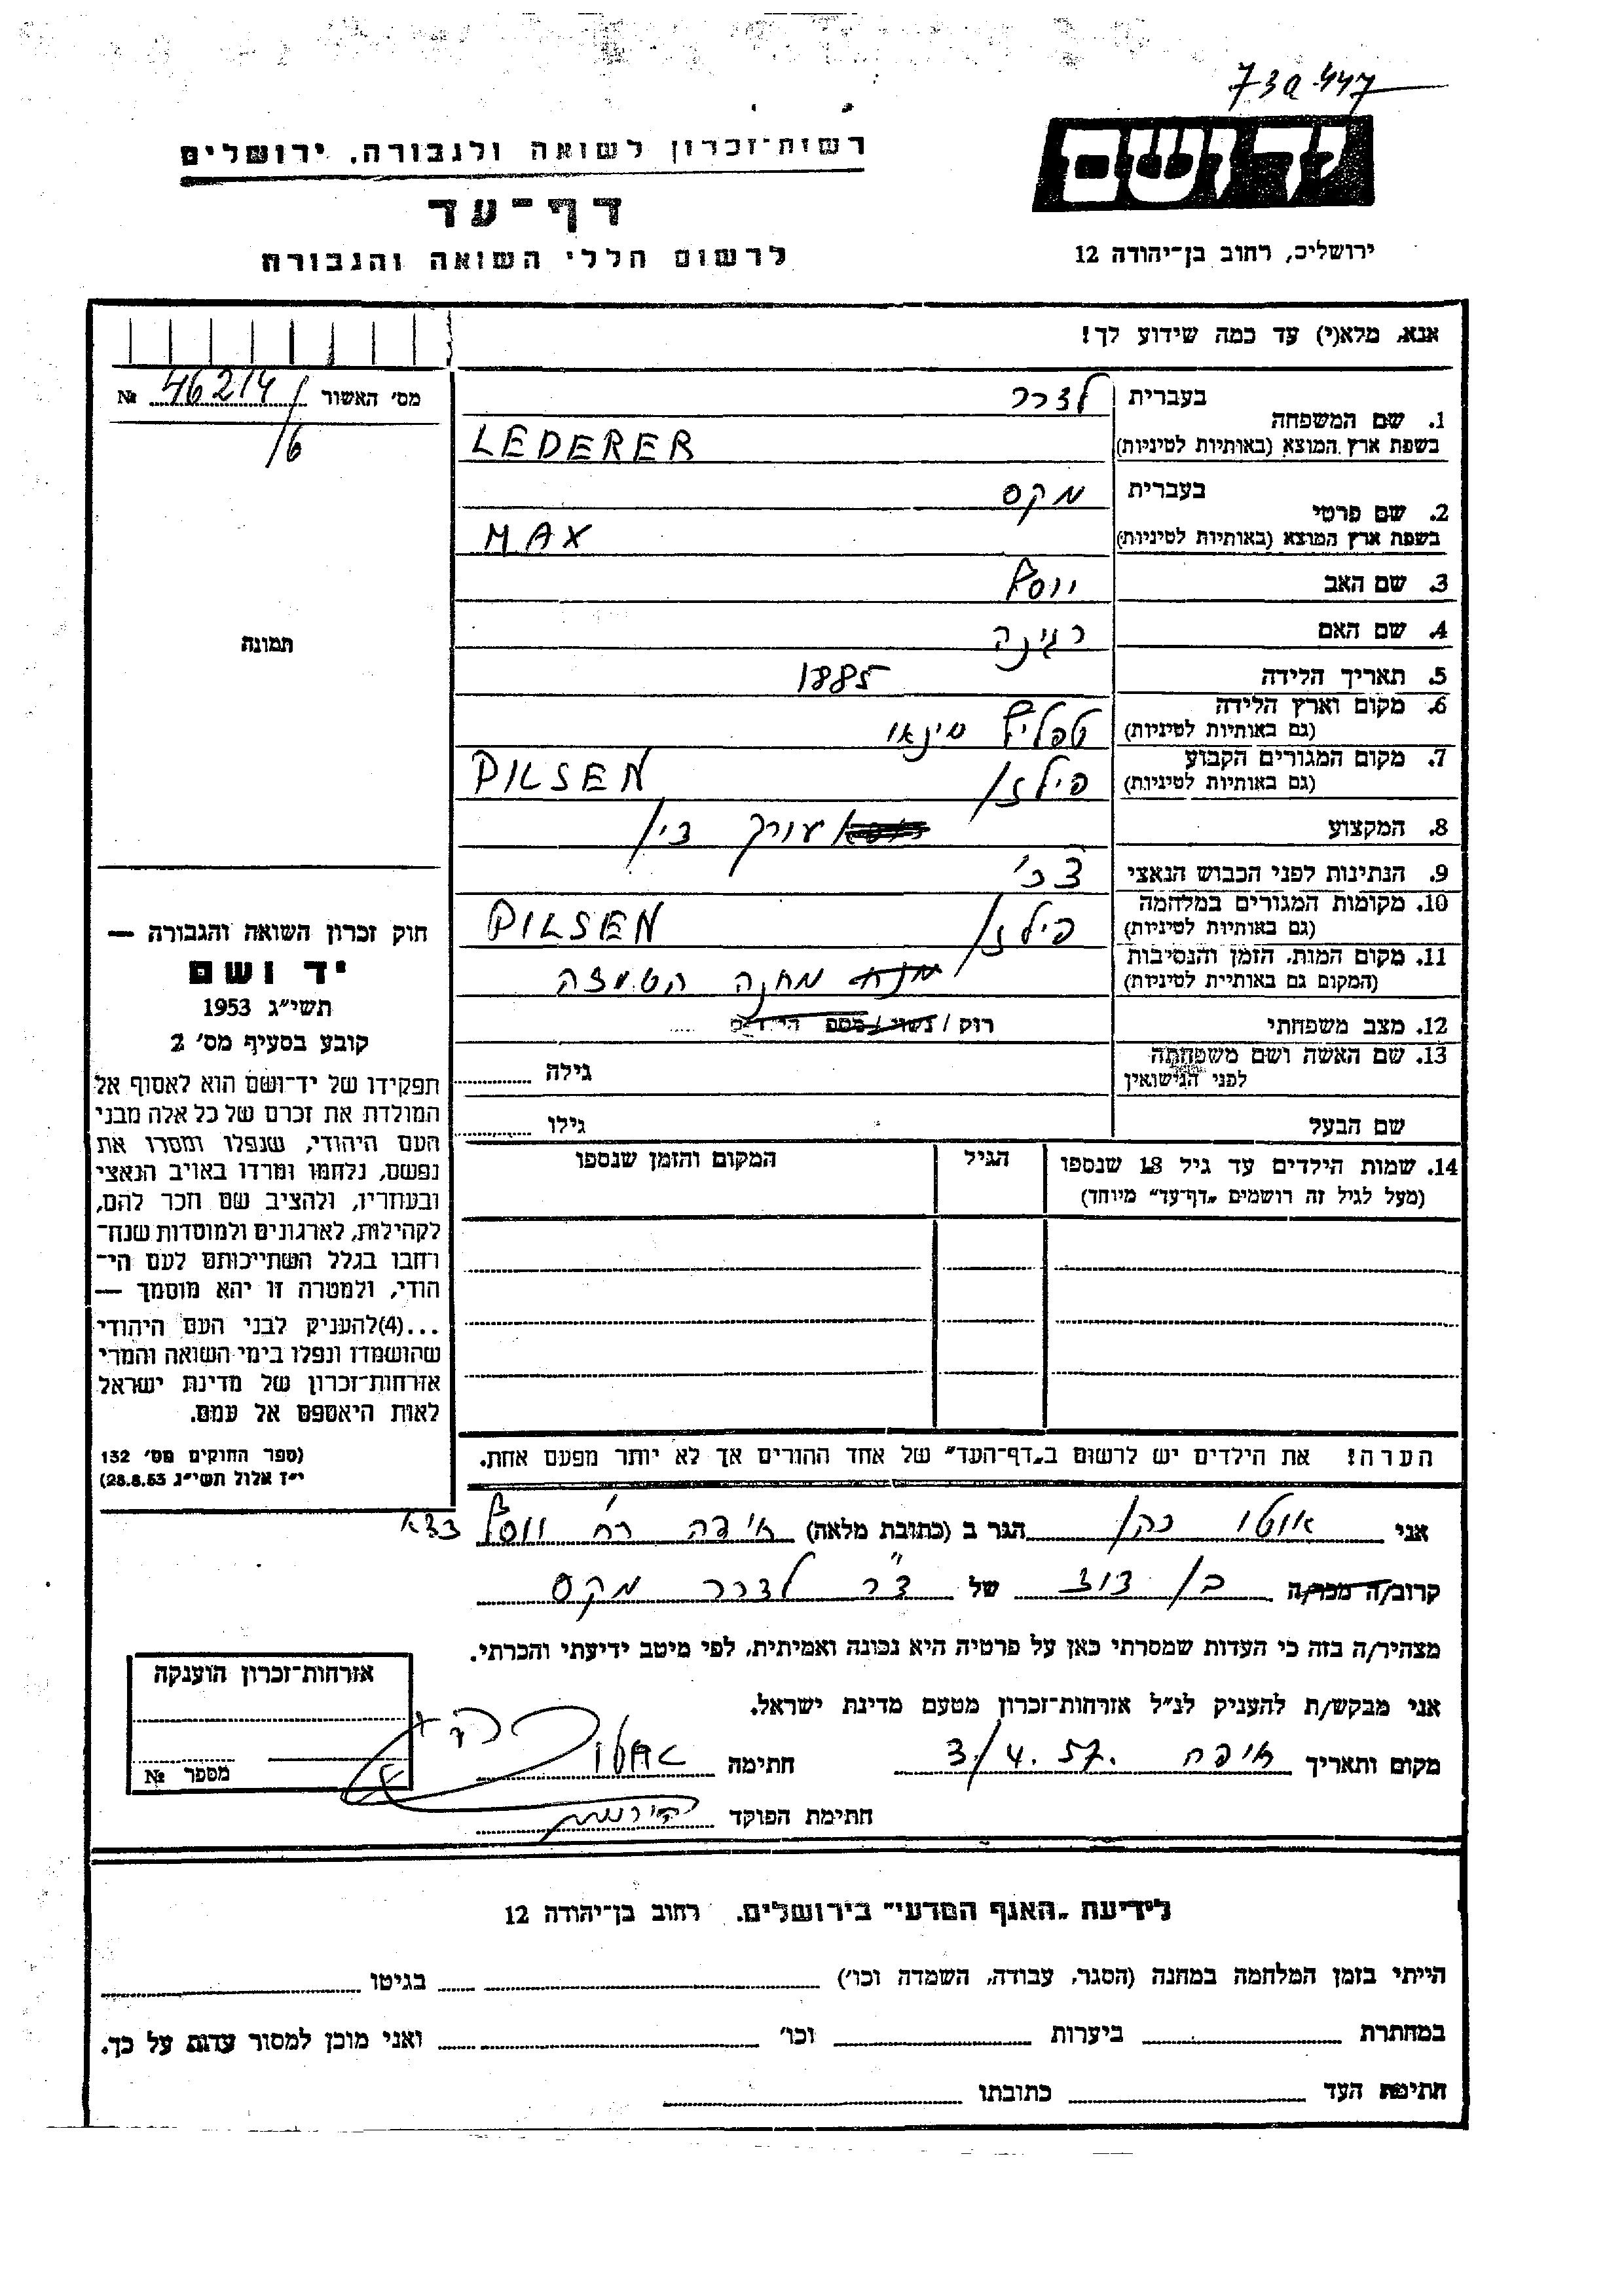 73a 447
יד ושם
רשות־זכרון לשואה ולגבורה. ירושלים
דף־עד
לרשום חללי השואה והגבורה
ירושלים, רחוב בן־יהודה 12
אנא, מלא(י) עד כמה שידוע לך!
מס' האשור 46214/6 №
1. שם המשפחה
בעברית לדרר
בשפת ארץ המוצא (באותיות לטיניות) LEDERER
2. שם פרטי
בעברית מקס
בשפת ארץ המוצא (באותיות לטיניות) MAX
3. שם האב יוסף
4. שם האם רגינה
תמונה
5. תאריך הלידה 1885
6. מקום וארץ הלידה טפליץ
(גם באותיות לטיניות)
7. מקום המגורים הקבוע פילזן PILSEN
(גם באותיות לטיניות)
8. המקצוע עורך דין
9. הנתינות לפני הכבוש הנאצי צכ'
10. מקומות המגורים במלחמה פילזן PILSEN
(גם באותיות לטיניות)
11. מקום המות, הזמן והנסיבות מחנה השמדה
(המקום גם באותיות לטיניות)
12. מצב משפחתי רוק / נשוי / מספר הילדים
13. שם האשה ושם משפחתה גילה
לפני הנישואין
שם הבעל גילו
14. שמות הילדים עד גיל 18 שנספו הגיל המקום והזמן שנספו
(מעל לגיל זה רושמים „דף־עד" מיוחד)
הערה! את הילדים יש לרשום ב„דף־העד" של אחד ההורים אך לא יותר מפעם אחת.
חוק זכרון השואה והגבורה —
יד ושם
תשי"ג 1953
קובע בסעיף מס' 2
תפקידו של יד־ושם הוא לאסוף אל
המולדת את זכרם של כל אלה מבני
העם היהודי, שנפלו ומסרו את
נפשם, נלחמו ומרדו באויב הנאצי
ובעוזריו, ולהציב שם וזכר להם,
לקהילות, לארגונים ולמוסדות שנח־
רבו בגלל השתייכותם לעם הי־
הודי, ולמטרה זו יהא מוסמך —
...(4) להעניק לבני העם היהודי
שהושמדו ונפלו בימי השואה והמרי
אזרחות־זכרון של מדינת ישראל
לאות היאספם אל עמם.
(ספר החוקים מס' 132
י"ז אלול תשי"ג 28.8.53)
אני אוטו כהן הגר ב (כתובת מלאה) חיפה רח' יוסף
קרוב/ה מכר/ה בן דוד של ד"ר לדרר מקס
מצהיר/ה בזה כי העדות שמסרתי כאן על פרטיה היא נכונה ואמיתית, לפי מיטב ידיעתי והכרתי.
אני מבקש/ת להעניק לנ"ל אזרחות־זכרון מטעם מדינת ישראל.
מקום ותאריך חיפה 3/4.57. חתימה אוטו כהן
חתימת הפוקד
אזרחות־זכרון הוענקה
מספר №
לידיעת „האגף המדעי" בירושלים. רחוב בן־יהודה 12
הייתי בזמן המלחמה במחנה (הסגר, עבודה, השמדה וכו') בגיטו
במחתרת ביערות וכו' ואני מוכן למסור עדות על כך.
חתימת העד כתובתו